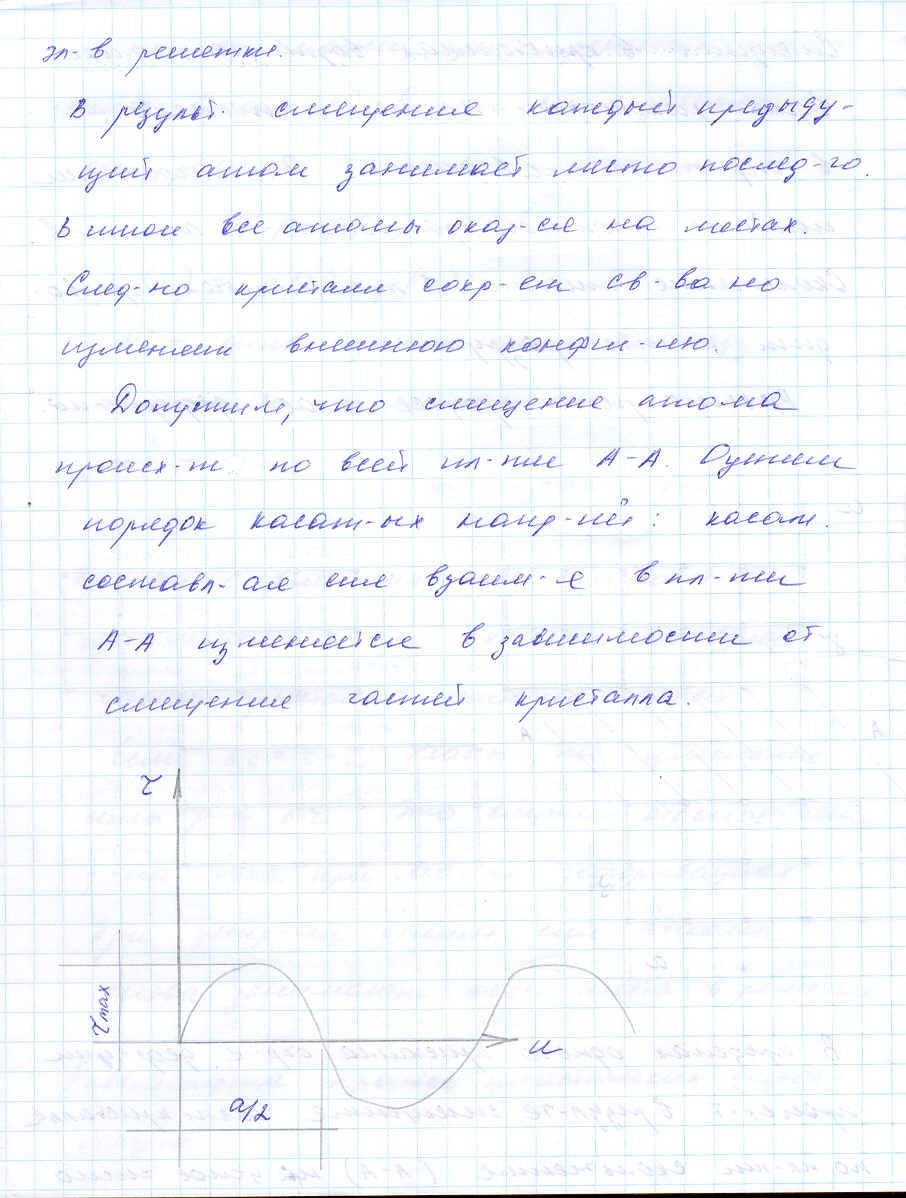 эл-в решетки.
В результ. смещения каждый предыду-
щий атом занимает место послед-го.
В итоге все атомы оказ-ся на местах.
След-но кристалл сохр-ет св-ва но
изменяет внешнюю конфиг-ию.
Допустим, что смещение атома
происх-т по всей пл-ти А-А. Оценим
порядок касат-ых напр-ий: касат.
составл-ая сил взаим-я в пл-ти
А-А изменяется в зависимости от
смещения частей кристалла.
τ
τmax
u
a/2